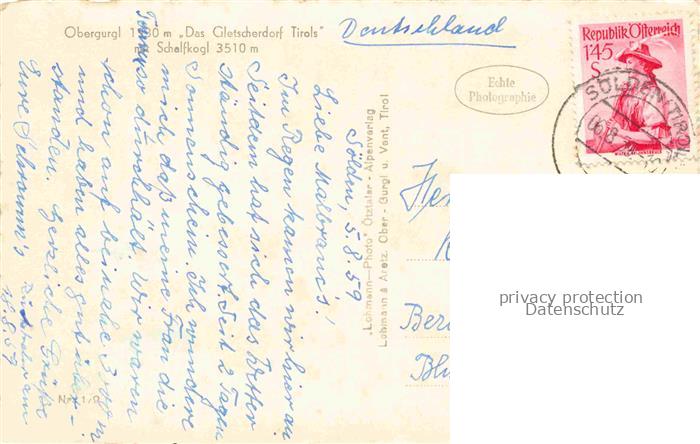 Obergurgl 1930 m „Das Gletscherdorf Tirols"
mit Schalfkogl 3510 m
Deutschland
Echte
Photographie
Republik Österreich
1'45
S
SÖLDEN TIROL
„Lohmann-Photo" Ötztaler-Alpenverlag
Lohmann & Aretz, Ober-Gurgl u. Vent, Tirol
Sölden, 5.8.59
Liebe Malbranc's!
Im Regen kamen wir hier an
Seitdem hat sich das Wetter
ständig gebessert. Seit 2 Tagen
Sonnenschein. Ich wundere
mich daß meine Frau die
Touren so durchhält. Wir waren
schon auf beinahe 3000 m
und haben alles gut über-
standen. Herzliche Grüße
Eure Schramm's
Rückkehr am
15.8.59
Her
Ber
Bl
privacy protection
Datenschutz